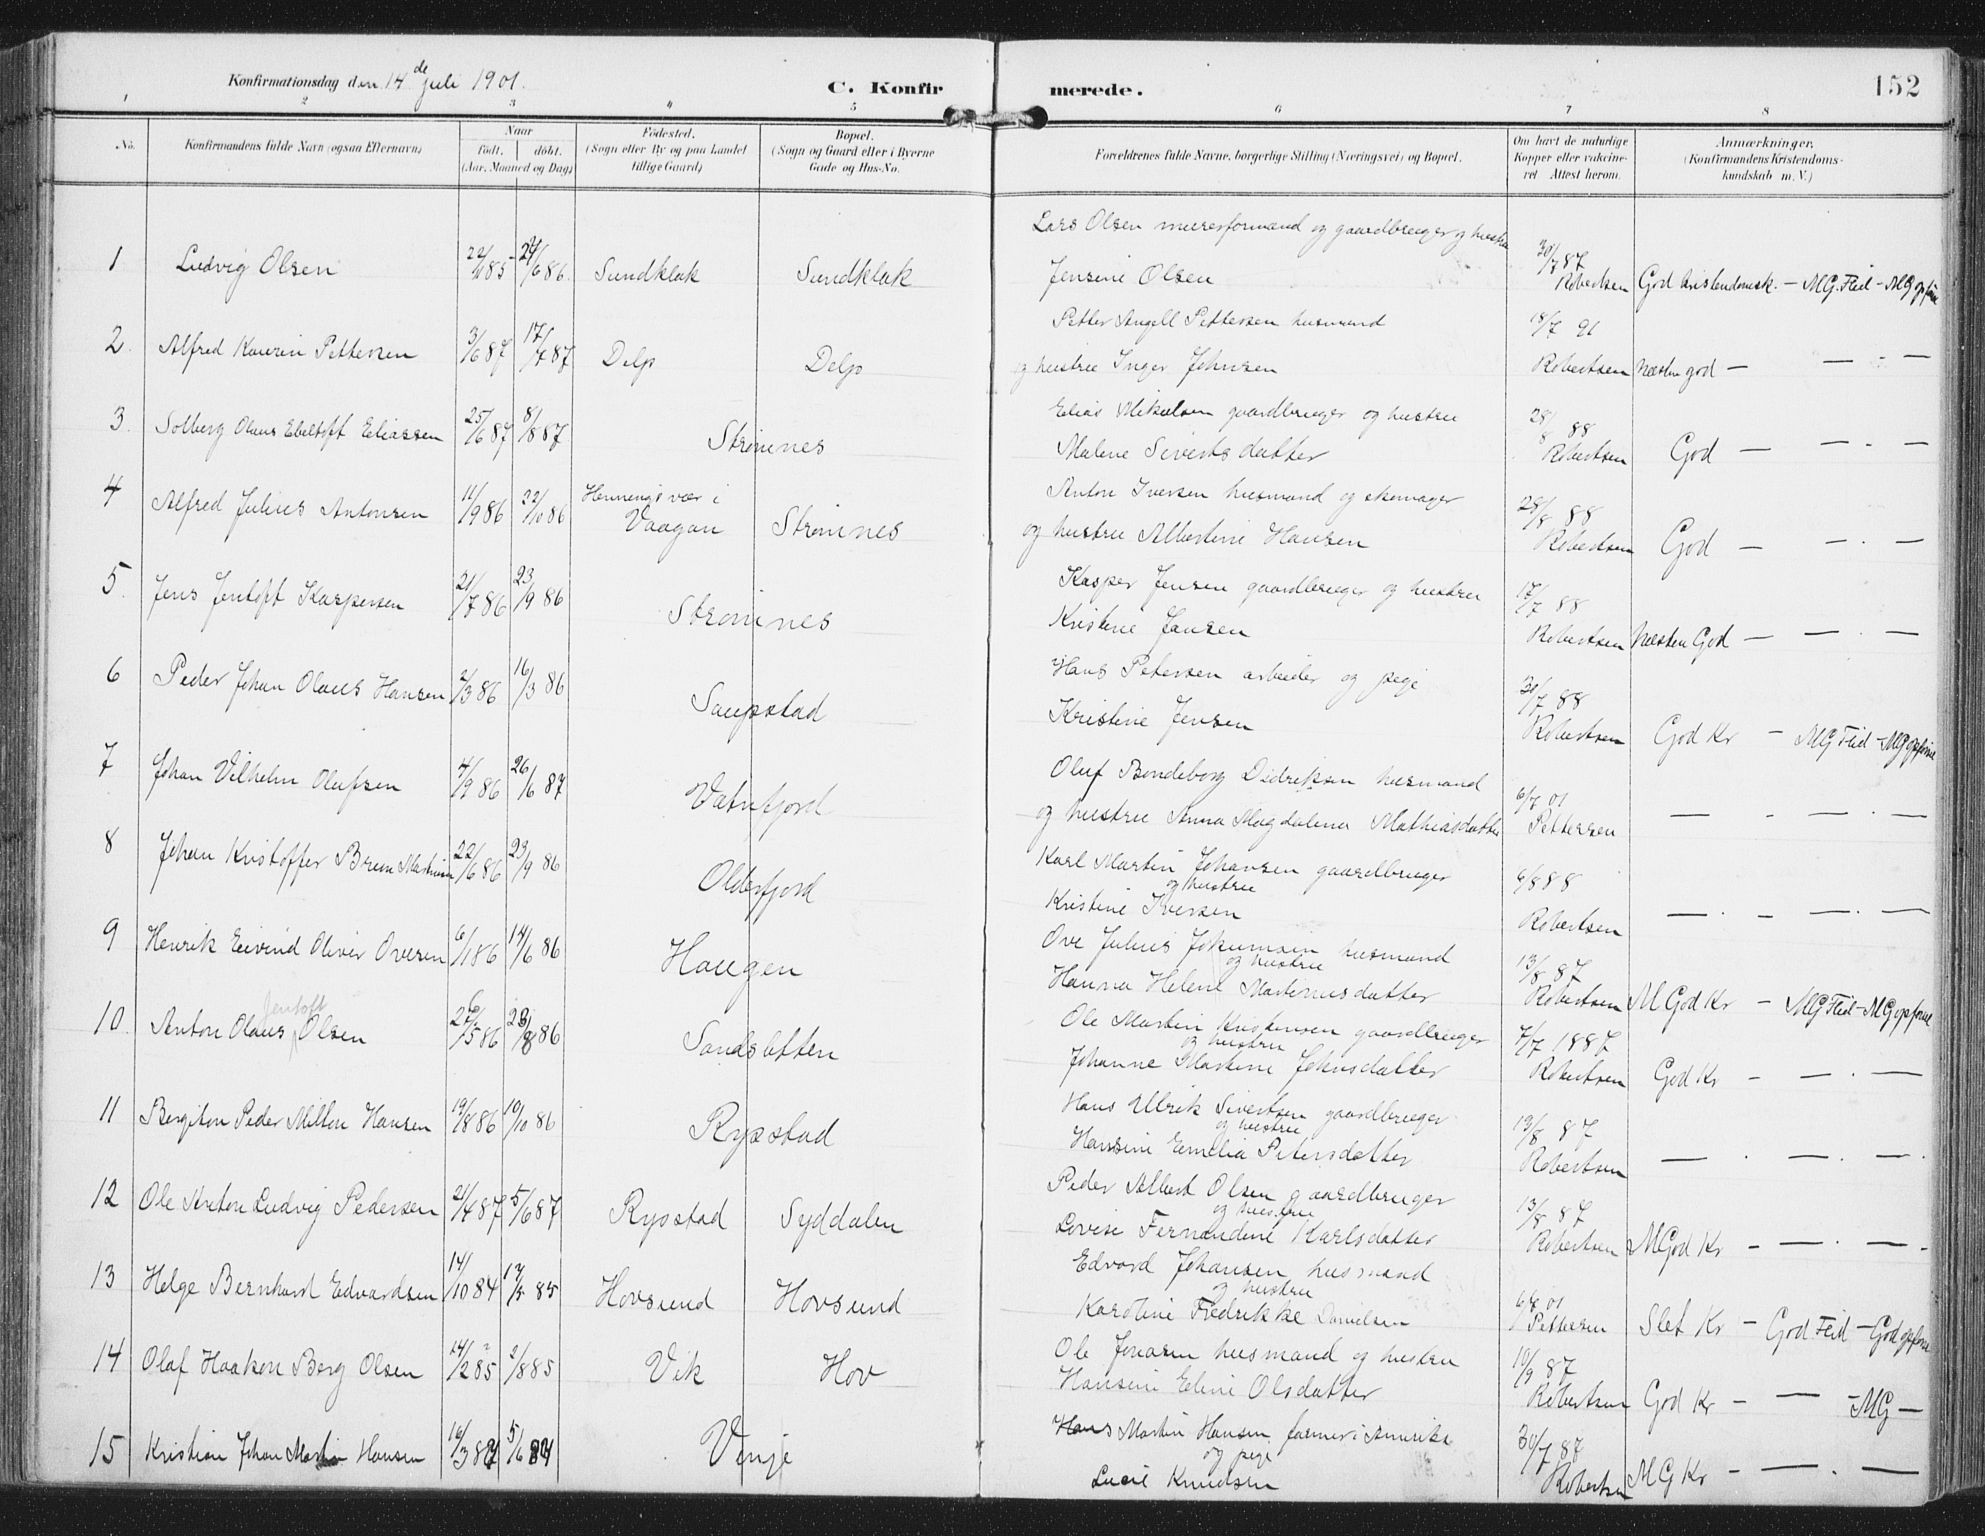 Konfirmationsdag den 14de Juli 1901.
C. Konfir
merede.
152
1 2 3 4 5 6 7 8
No.
Konfirmandens fulde Navn (ogsaa Efternavn)
Naar
født. døbt.
(Aar, Maaned og Dag)
Fødested.
(Sogn eller By og paa Landet
tillige Gaard)
Bopæl.
(Sogn og Gaard eller i Byerne
Gade og Hus-No.
Forældrenes fulde Navne, borgerlige Stilling (Næringsvei) og Bopæl.
Om havt de naturlige
Kopper eller vakcine-
ret Attest herom.
Anmærkninger.
(Konfirmandens Kristendoms-
kundskab m. V.)
Lars Olsen murerformand og gaardbruger og hustru
1 Ludvig Olsen 85 24/6 86. Sundklak Sundklak Jensine Olsen 30/7 87 Robertsen God kristendomsk. - MG. Flid - MG opfør
Petter Angell Pettersen husmand
2 Alfred Kaurin Pettersen 3/6 87 17/7 87 Delp Delp og hustru Inger Johnsen 18/7 91 Robertsen Næsten god — — - —
Elias Mikalsen gaardbruger og hustru
3. Solberg Olaus Ebeltoft Eliassen 25/6 87 8/8 87 Strømnes Malene Sivertsdatter 28/8 88 Robertsen God — — . —
Anton Iversen husmand og skomager
4 Alfred Julius Antonsen 11/9 86 22/10 86 Henningsvær i Vaagan Strømnes og hustru Albertine Hansen 28/8 88 Robertsen God — — . —
Kasper Jensen gaardbruger og hustru
5. Jens Jentoft Kaspersen 21/7 86 23/9 86 Strømnes Kristine Jansen 17/7 88 Robertsen Næsten God — — . —
Hans Petersen arbeider og pige
6 Peder Johan Olaus Hansen 2/3 86 16/3 86 Saupstad Kristine Jensen 30/7 88 Robertsen God Kr — MG Flid - MG opførsel
Oluf Bendeborg Didriksen husmand
7 Johan Vilhelm Olufsen 4/9 86 26/6 87 Vatnfjord og hustru Anna Magdalena Mathiasdatter 6/7 01 Pettersen — - — . —
Karl Martin Johansen gaardbruger
og hustru
8 Johan Kristoffer Brun Martinsen 22/6 86 23/9 86 Olderfjord Kristine Iversen 6/8 88 Robertsen — . - — . —
Ove Julius Jokumsen husmand
og hustru
9 Henrik Eivind Oliver Ovesen 6/1 86 14/6 86 Haugen Hanna Helene Martinusdatter 13/8 87 Robertsen M God Kr — MG Flid - MG opførsel
Ole Martin Kristensen gaardbruger
og hustru
10. Anton Olaus Jentoft Olsen 5 86 8 86 Sandslatten Johanne Martine Johnsdatter 7/7 1887 Robertsen God Kr — — . —
Hans Ulrik Sivertsen gaardbruger
og hustru
11 Bergiton Peder Milton Hansen 19/8 86 10/10 86 Rypstad Hansine Emelia Petersdatter 13/8 87 Robertsen — . — . — .
Peder Albert Olsen gaardbruger
og hustru
12 Ole Anton Ludvig Pedersen 21/4 87 5/6 87 Rypstad Syddalen Lovise Fernandine Karlsdatter 13/8 87 Robertsen MGod Kr — — . — -
Edvard Johansen husmand
og hustru
13 Helge Bernhard Edvardsen 14/10 84 85 Hovsund Hovsund Karoline Fredrikke Danielsen 6/7 01 Pettersen Slet Kr — God Flid - God opførsel
Ole Jonasen husmand og hustru
14 Olaf Haakon Berg Olsen 14/2 85 2/8 85 Vik Hov Hansine Eline Olsdatter 10/9 87 Robertsen God Kr — — - MG —
Hans Martin Hansen farmer i Amerika
og pige
15 Kristian Johan Martin Hansen 16/3 5/6 Vinje Lucie Knudsen 30/7 87 Robertsen MG Kr — — . —